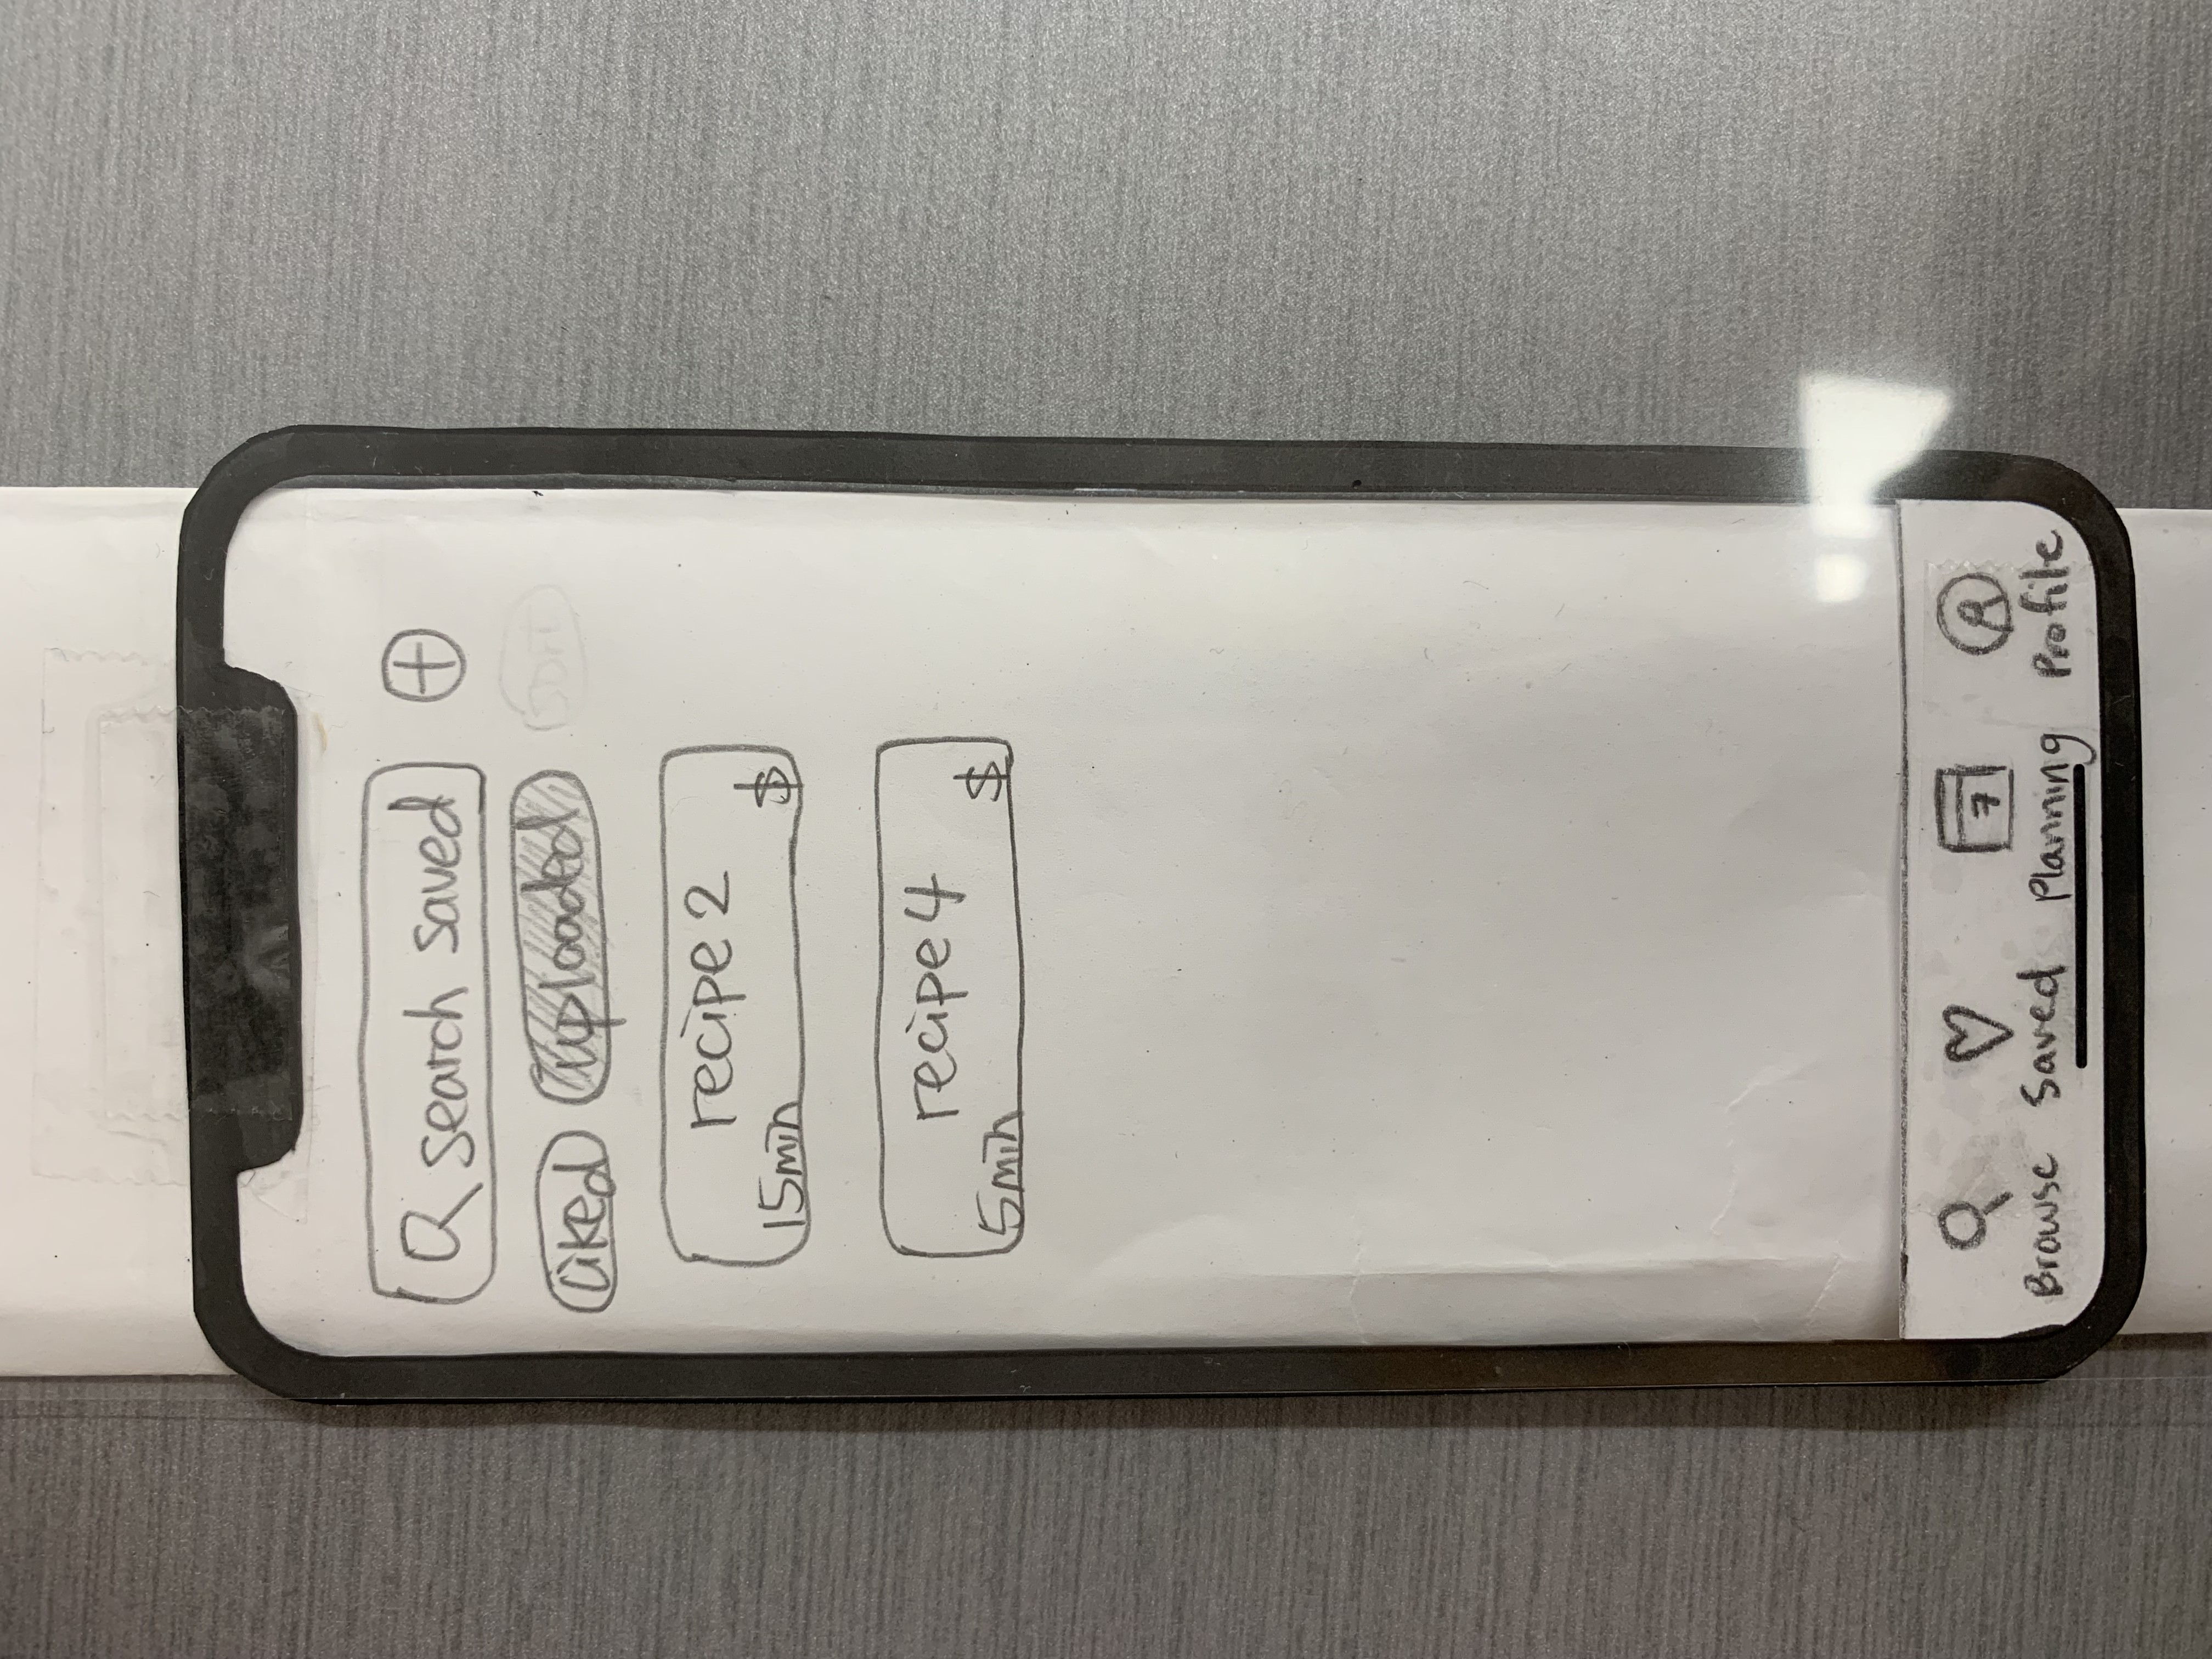 search saved
liked uploaded sort
recipe 2
15min $
recipe 4
5min $
7
Browse Saved Planning Profile